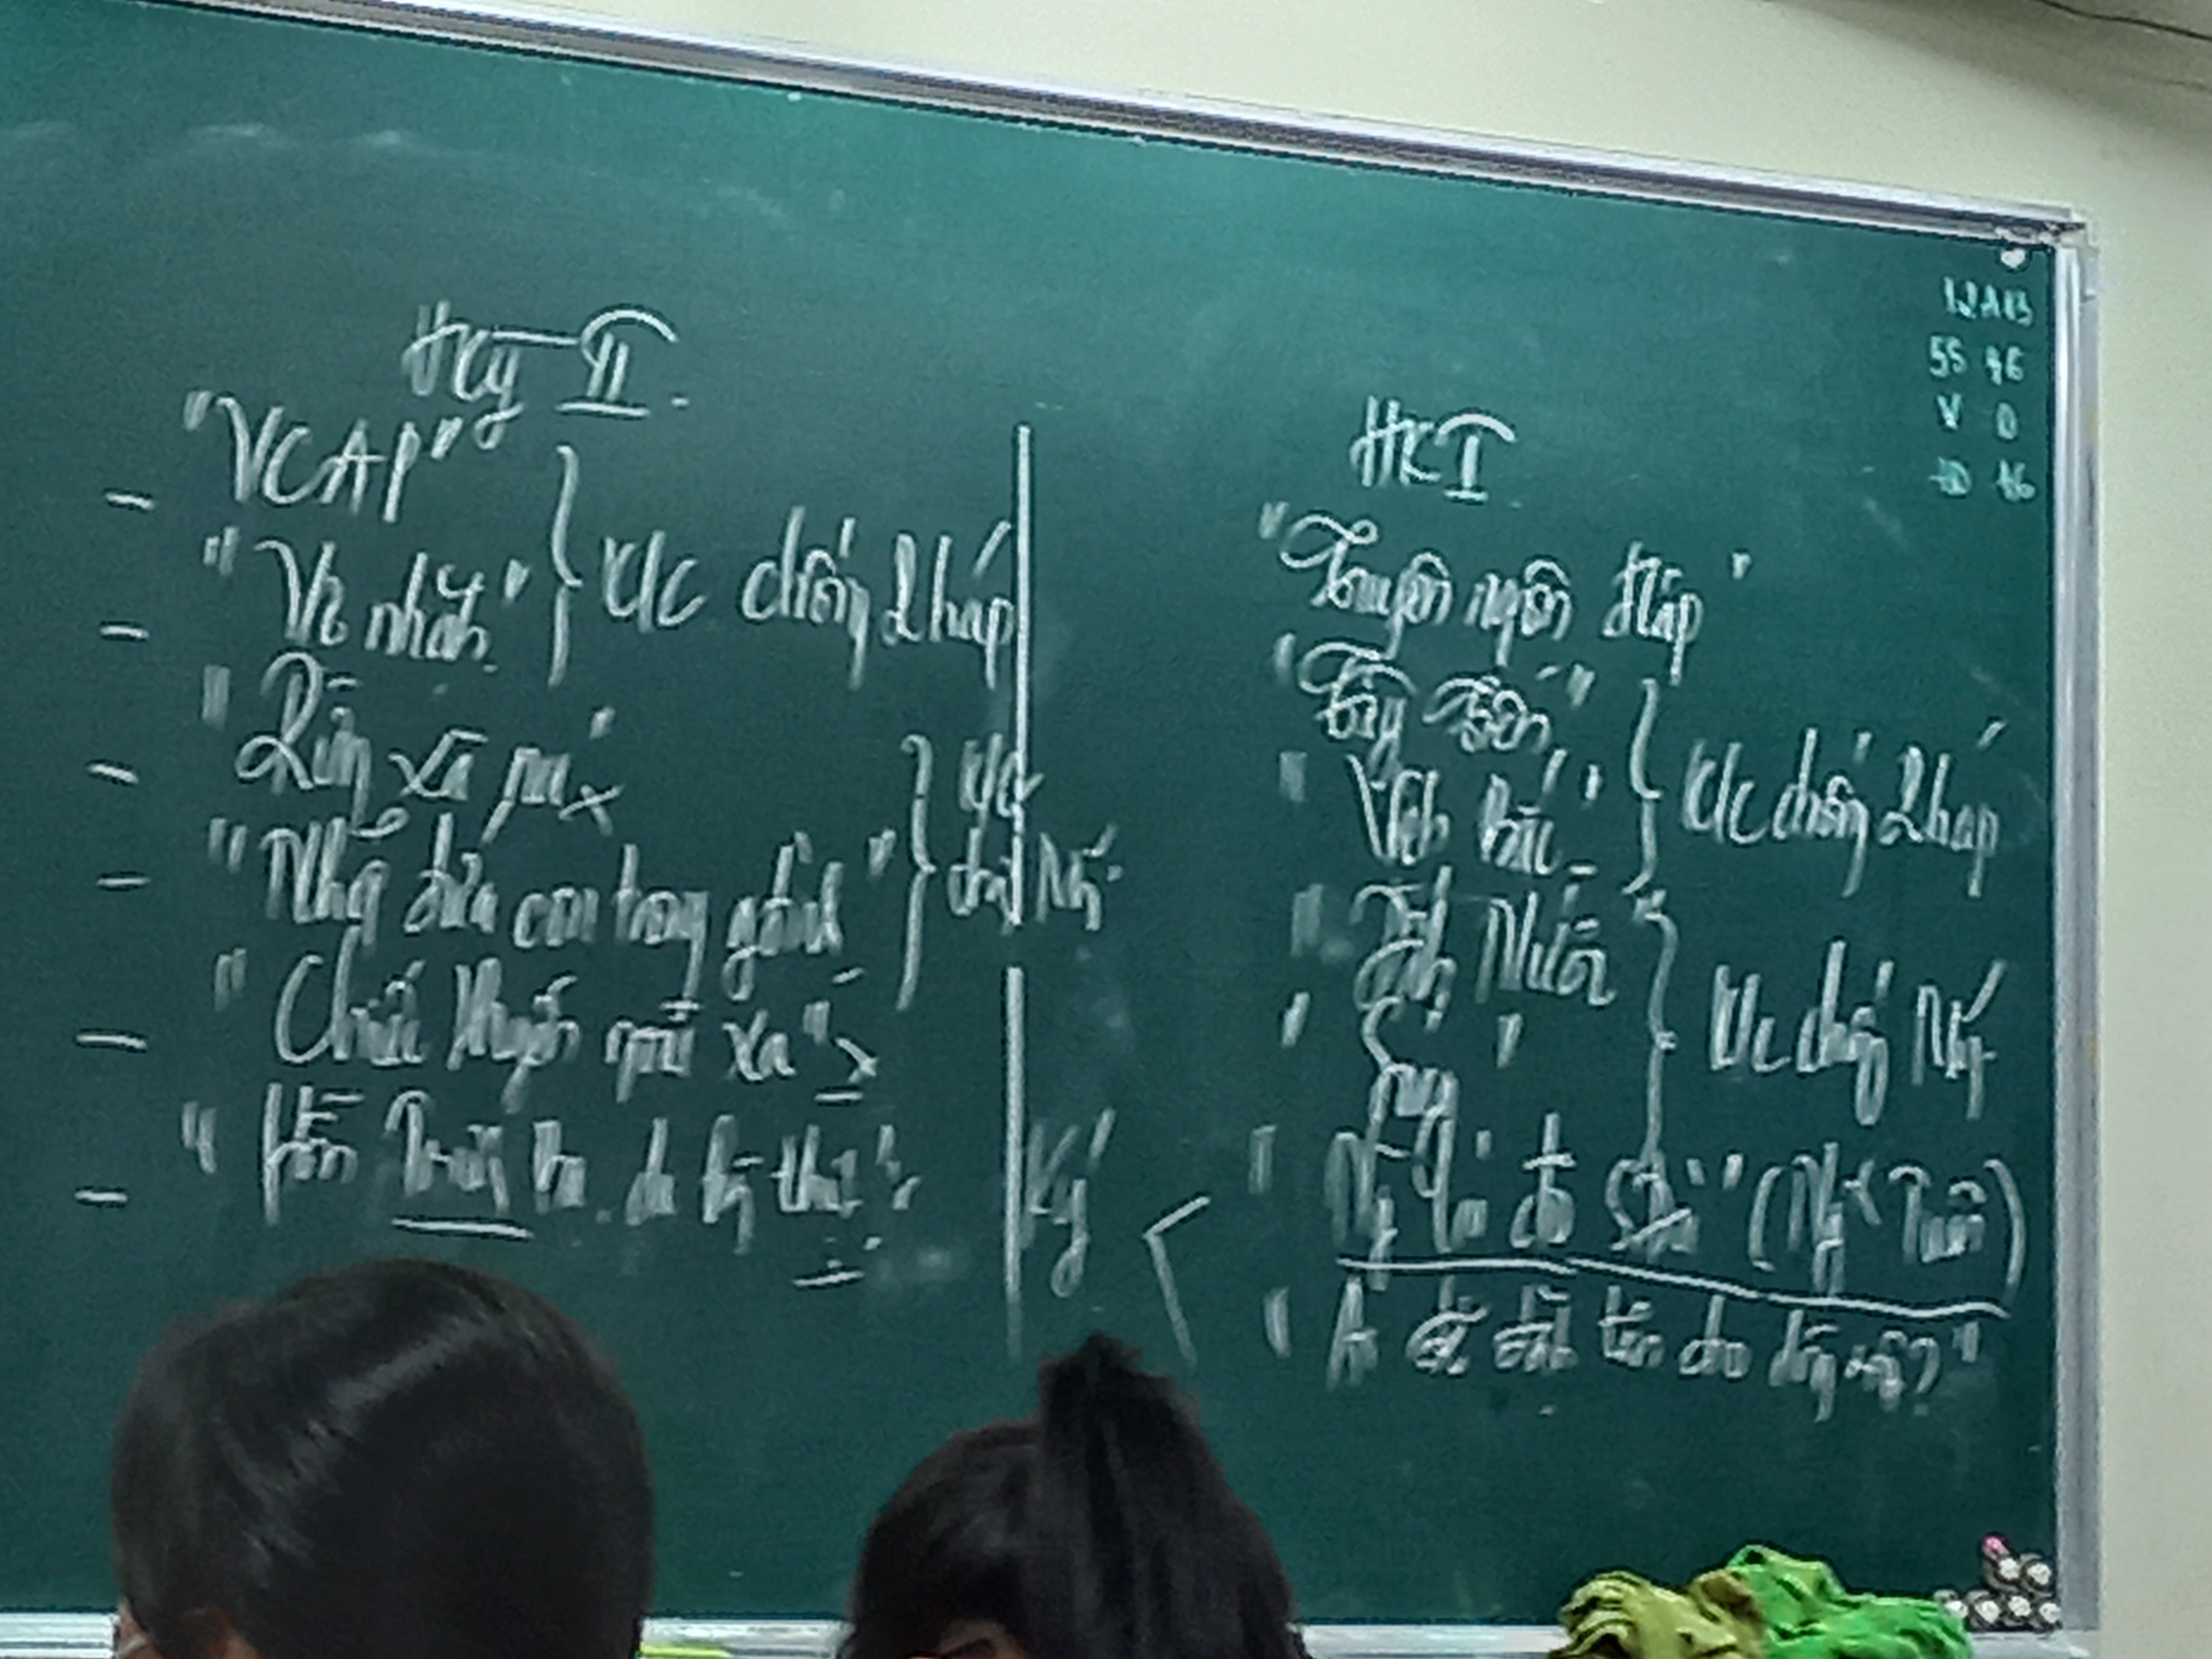 HKỳ II.
- "VCAP"
- "Vợ nhặt."
} K/c chống Pháp
- "Rừng xà nu"
- "Những đứa con trong gia đình"
} K/c chống Mỹ
- "Chiếc thuyền ngoài xa"
- "Hồn Trương Ba, da hàng thịt"
HKI
"Tuyên ngôn độc lập"
"Tây Tiến"
"Việt Bắc"
} K/c chống Pháp
"Đất Nước"
"Sóng"
} K/c chống Mỹ
Ký < "Ng lái đò SĐà" (Ng~ Tuân)
"Ai đã đặt tên cho dòng sông?"
SS 46
V 0
46